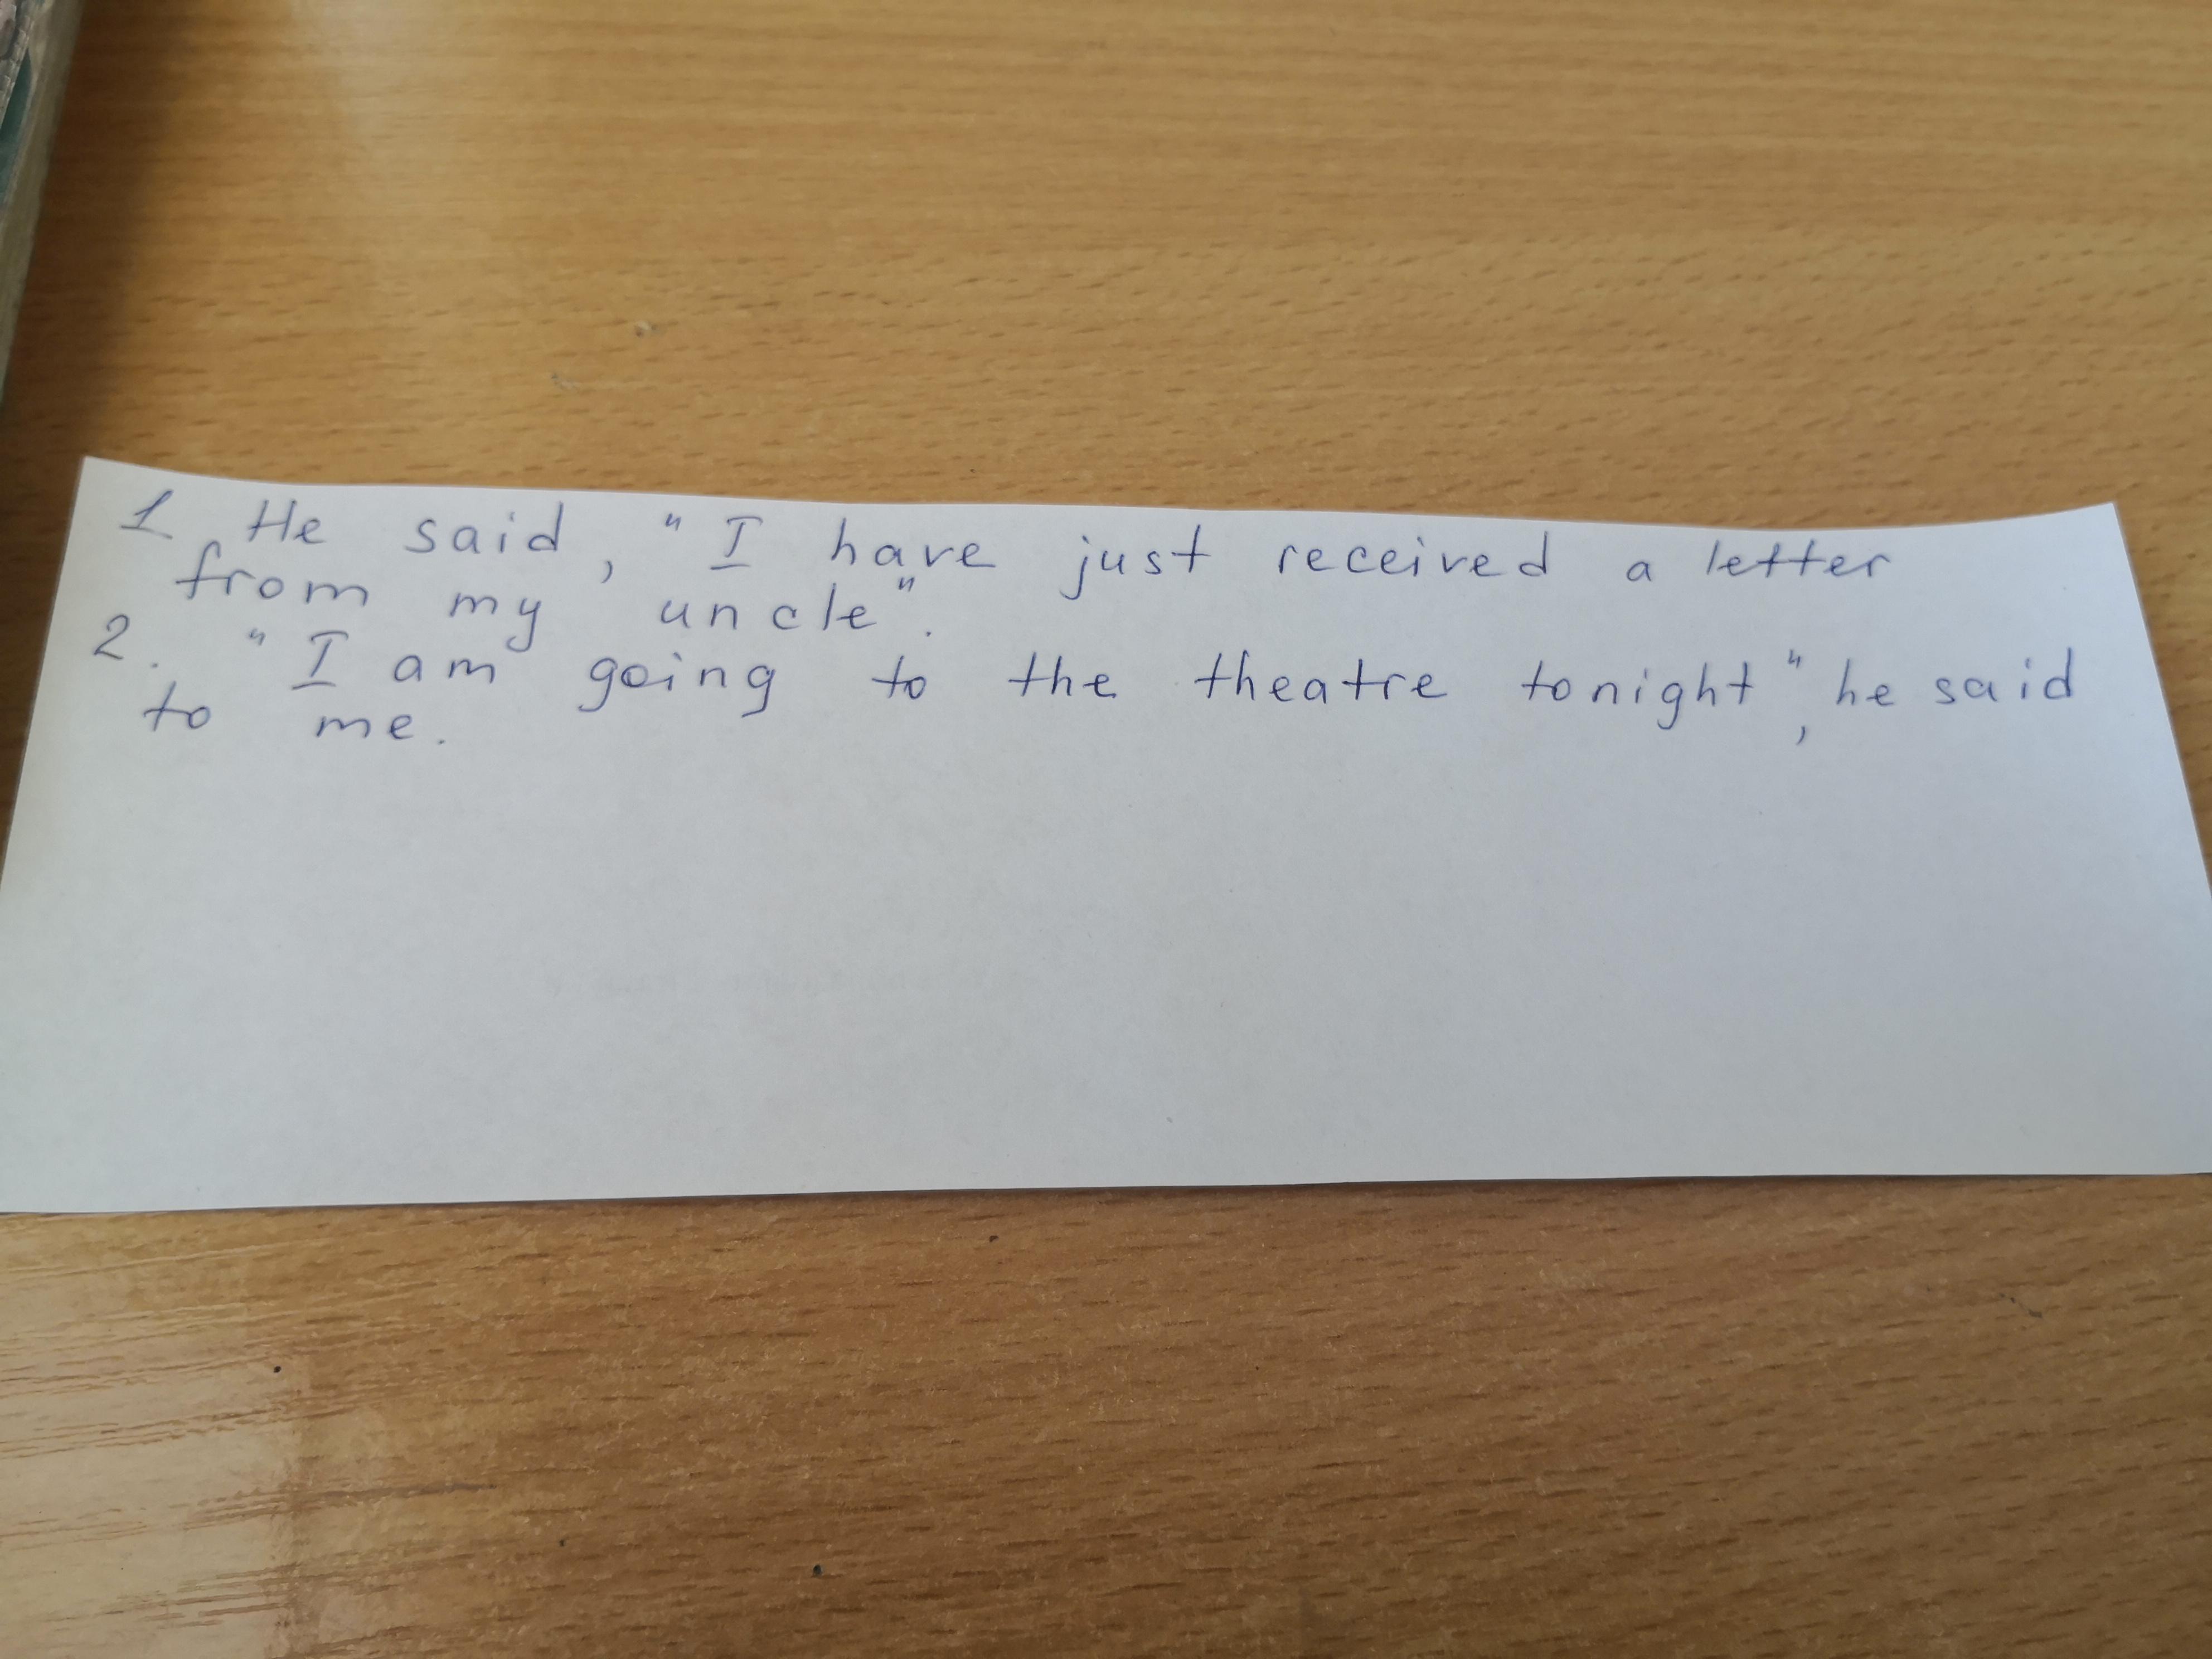 1. He said, "I have just received a letter
from my uncle".
2. "I am going to the theatre tonight", he said
to me.